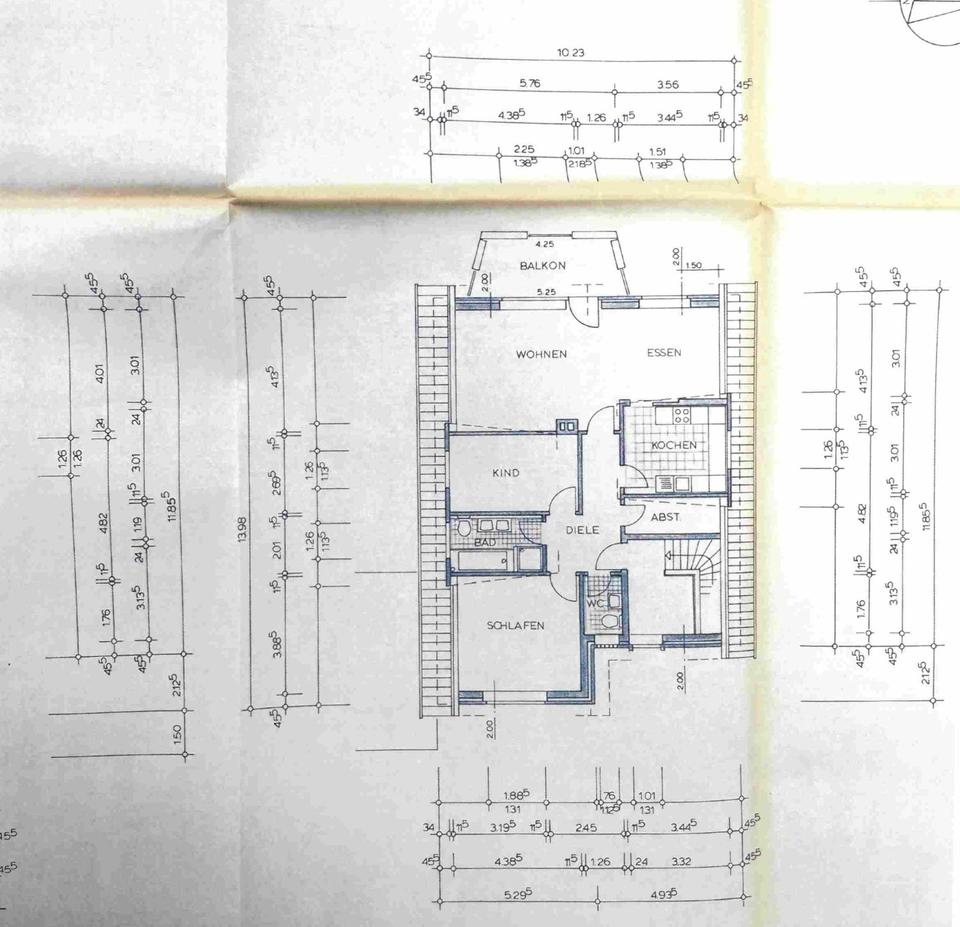 10.23
45⁵ 5.76 3.56 45⁵
34 11⁵ 4.38⁵ 11⁵ 1.26 11⁵ 3.44⁵ 11⁵ 34
2.25 1.01 1.51
1.38⁵ 2.18⁵ 1.38⁵
4.25
BALKON
2.00 5.25 2.00 1.50
WOHNEN ESSEN
KOCHEN
KIND
ABST.
DIELE
BAD
WC
SCHLAFEN
2.00 2.00
45⁵ 45⁵
4.01 3.01
24 24
1.26 1.26 3.01
11⁵
4.82 1.19 11.85⁵
24
11⁵
1.76 3.13⁵
45⁵ 45⁵
2.12⁵
1.50
45⁵
4.13⁵
11⁵
2.69⁵ 1.26 1.13⁵
13.98 11⁵
2.01 1.26 1.13⁵
11⁵
3.88⁵
45⁵
45⁵ 45⁵
4.13⁵ 3.01
24
11⁵
1.26 1.13⁵ 3.01
11⁵
4.82 1.19⁵ 11.85⁵
24
11⁵
1.76 3.13⁵
45⁵ 45⁵
2.12⁵
1.88⁵ 76 1.01
1.31 1.12⁵ 1.31
34 11⁵ 3.19⁵ 11⁵ 2.45 11⁵ 3.44⁵ 45⁵
45⁵ 4.38⁵ 11⁵ 1.26 24 3.32 45⁵
5.29⁵ 4.93⁵
45⁵
45⁵